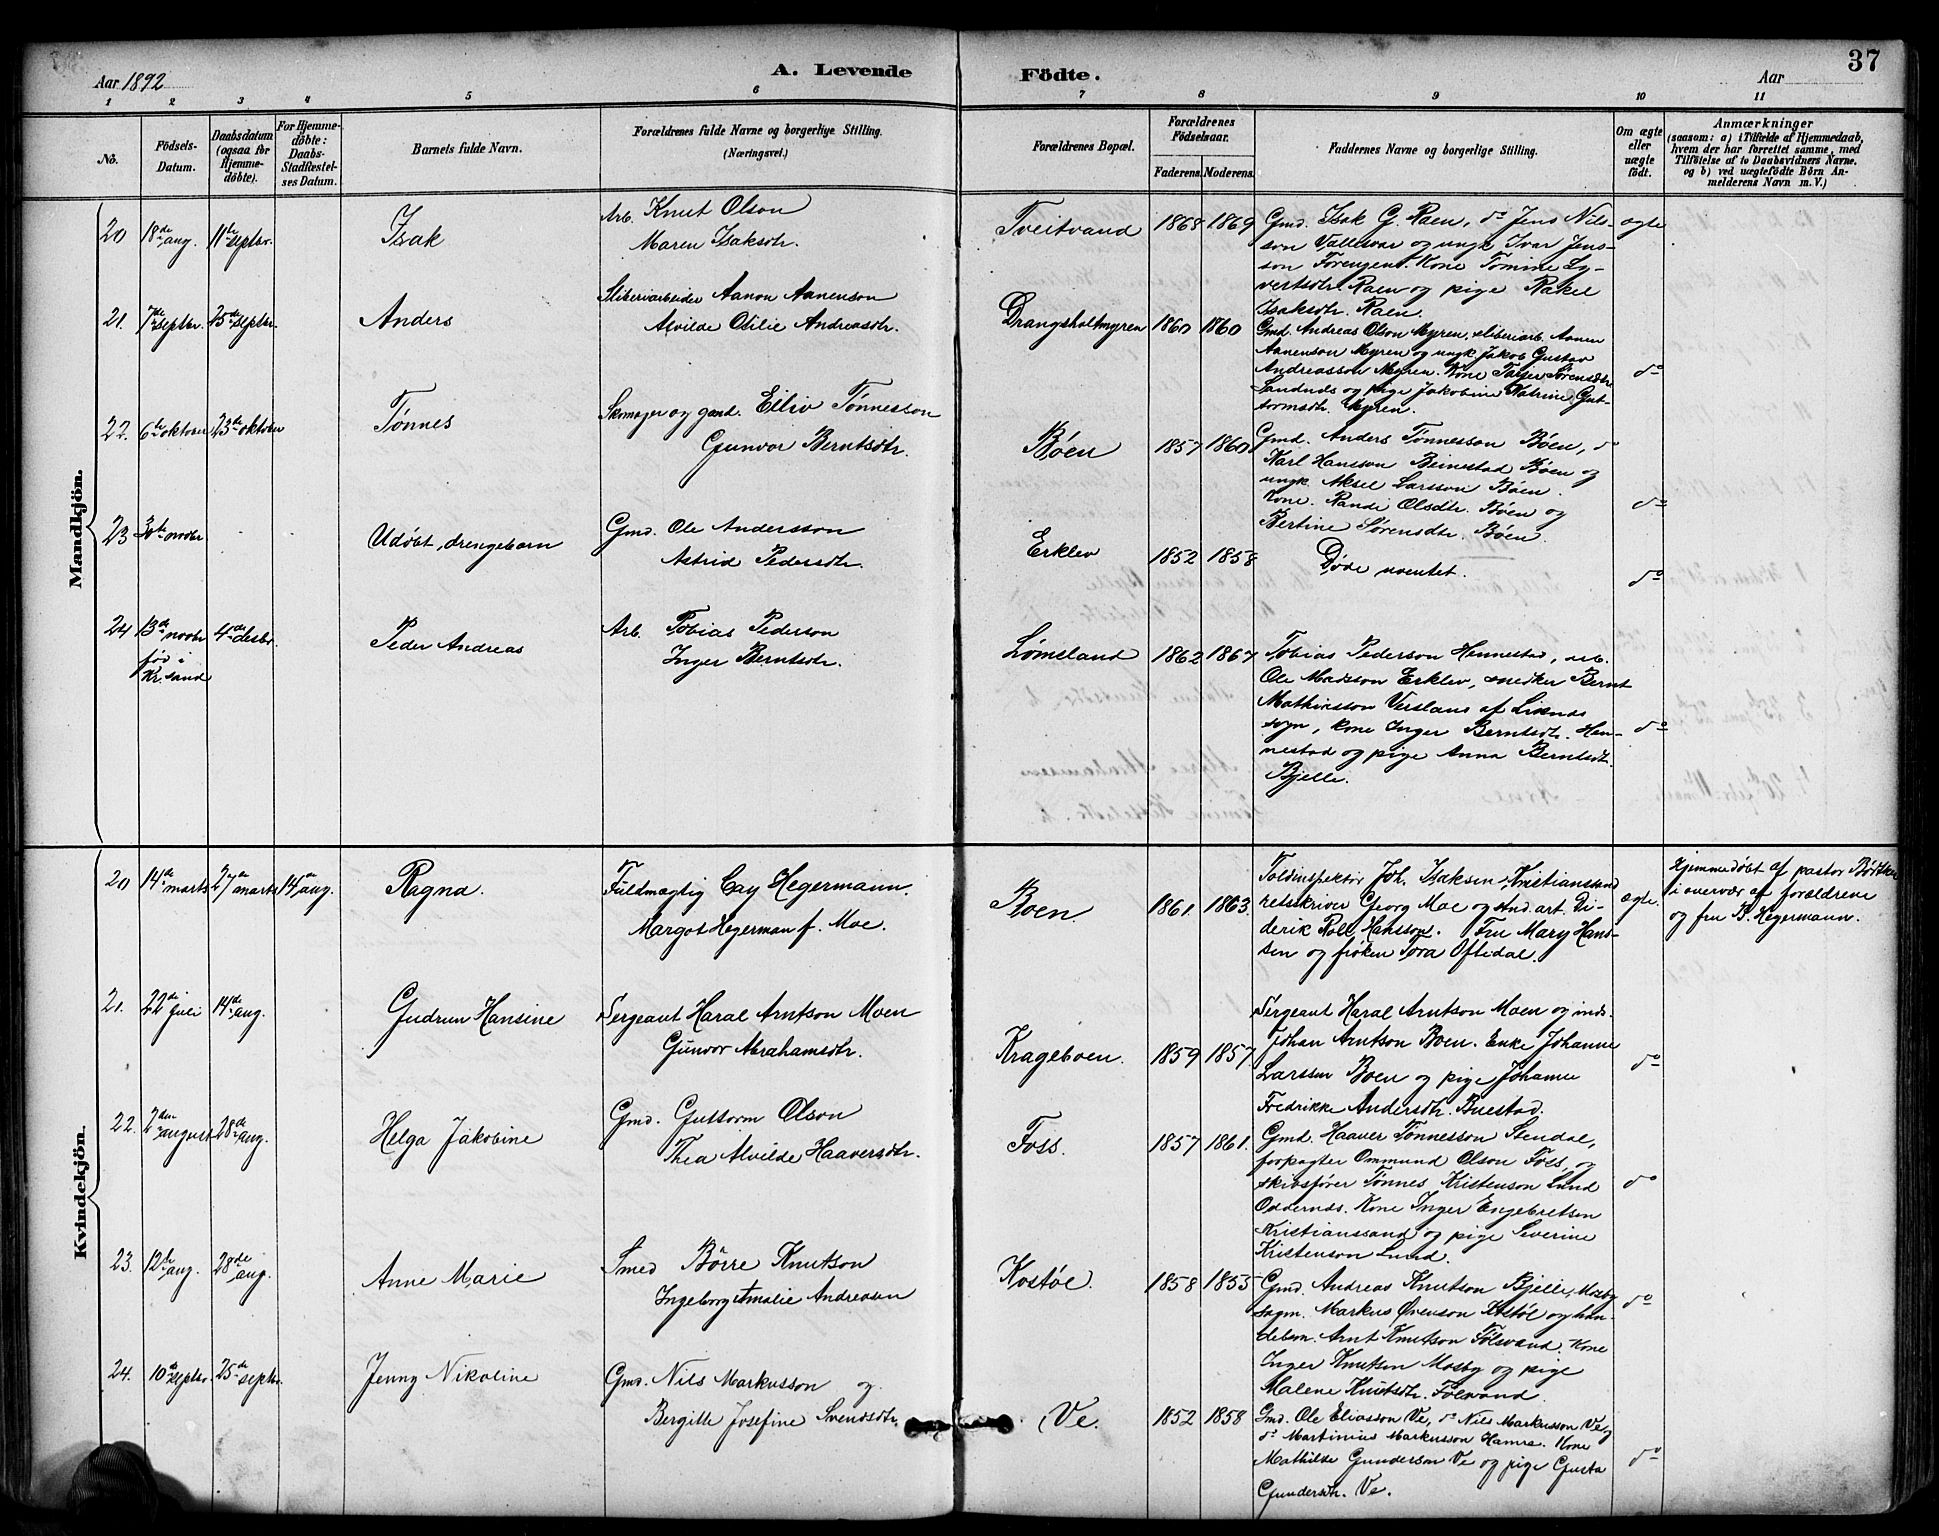 37
Aar 1892
A. Levende Födte.
Aar
1 2 3 4 5 6 7 8 9 10 11
No.
Födsels-
Datum.
Daabsdatum
(ogsaa for
Hjemme-
döbte).
For Hjemme-
döbte:
Daabs-
Stadfæstel-
ses Datum.
Barnets fulde Navn.
Forældrenes fulde Navne og borgerlige Stilling.
(Næringsvei.)
Forældrenes Bopæl.
Forældrenes
Födselsaar.
Faderens. Moderens.
Faddernes Navne og borgerlige Stilling.
Om ægte
eller
uægte
födt.
Anmærkninger
(saasom: a) i Tilfælde af Hjemmedaab,
hvem der har forrettet samme, med
Tilföielse af to Daabsvidners Navne.
og b) ved uægtefödte Börn An-
melderens Navn m. V.)
Mandkjön.
20 18de aug. 11te septbr. Isak
Arb. Knut Olson
Maren Isaksdtr.
Tveitvand 1868 1869
Gmd. Isak G. Raen, do Jens Nils-
son Vallesvar og ungk Ivar Jens-
son Forengen. Kone Tomine Sy-
vertsdtr. Raen og pige Rakel
Isaksdtr. Raen.
ægte
21. 7de septbr. 25de septbr. Anders
Sliberiarbeider Aanon Aanenson
Alvilde Otilie Andreasdtr.
Drangsholtmyren 1860 1860
Gmd. Andreas Olson Myren, sliberiarb. Aanen
Aanenson Myren og ungk Jakob Gustav
Andreasson Myren. Kone Tarjer Sørensdtr
Sandnes og pige Jakobine Katrine Gut-
tormsdtr. Myren.
do
22. 6te oktober 23de oktober Tønnes
Skomager og gmd. Elliv Tønnesson
Gunvor Berntsdtr.
Bóen 1857 1860
Gmd. Anders Tønnesson Bóen, do
Karl Hansson Beinestad Bóen og
ungk. Aksel Larsson Bóen.
Kone. Randi Olsdtr. Bóen og
Bertine Sørensdtr. Bóen.
do
23 30te novbr Udóbt drengebarn
Gmd. Ole Andersson
Astrid Pedersdtr.
Erklev 1852 1858
Døde uventet.
do
24 13de novbr
fød i
Kr.sand
4de desbr. Peder Andreas
Arb. Tobias Pederson
Inger Berntsdtr.
Lømsland 1862 1867
Tobias Pederson Hennestad, arb.
Ole Madsson Erklev, snedker Bernt
Mathisson Verslans af
sogn, kone Inger Berntsdtr. Hen-
nestad og pige Anna Berntsdtr.
Bjelle.
do
Kvindekjön.
20 14de marts 27de marts 14de aug. Ragna.
Fuldmægtig Cay Hegermann.
Margot Hegerman f. Moe.
Boen 1861. 1863.
Toldinspektør Joh. Isaksen, Kristianssand
retsskriver Georg Moe og stud. art. Di-
derik Roll Hansson. Fru Mary Hans-
sen og frøken Tora Oftedal.
ægte.
Hjemmedóbt af pastor Bødtker
i overvær af forældrene
og fru B. Hegermann.
21. 22de juli 14de aug. Gudrun Hansine
Sergeant Haral Arntson Moen
Gunvor Abrahamsdtr.
Krageboen. 1859 1857.
Sergeant Haral Arntson Moen og inds.
Johan Arntson Boen. Enke Johanne
Larssen Boen og pige Johanne
Fredrikke Andersdtr. Buestad.
do
22. 2den august 28de aug. Helga Jakobine
Gmd. Guttorm Olson
Thea Alvilde Haaversdtr.
Foss. 1857 1861.
Gmd. Haaver Tønnesson Stendal,
forpagter Ommund Olson Foss, og
skibsfører Tønnes Kristenson Lund
Oddernes. Kone Inger Engebretsen
Kristianssand og pige Severine
Kristenson Lund.
do
23. 12te aug. 28de aug. Anne Marie
Smed Børre Knutson
Ingeborg Amalie Andreasen
Kostøl. 1858 1853
Gmd. Andreas Knutson Bjelle, Mosby
sogn. Markus Ovenson Kostøl og han-
delsm. Arnt Knutson Følsvand. Kone
Inger Knutsen Mosby og pige
Malene Knutsdtr. Følsvand.
do
24. 10de septbr 25de septbr. Jenny Nikoline
Gmd. Nils Markusson og
Bergitte Josefine Svendsdtr.
Ve. 1852 1858
Gmd. Ole Eliasson Ve, do Nils Markusson Ve og
do Martinius Markusson Hamre. Kone
Mathilde Gunderson Ve og pige Gusta
Gundersdtr. Ve.
do